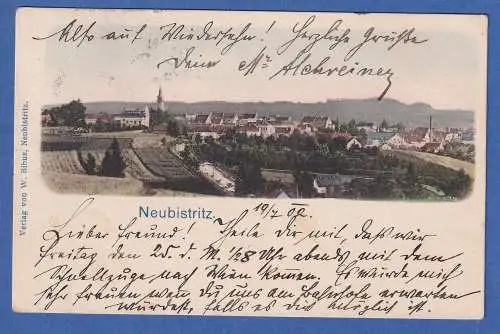 Also auf Wiedersehn! Herzliche Grüße
Dein
Verlag von W. Bibus, Neubistritz.
Neubistritz.
19/7 02.
Lieber Freund! Theile Dir mit, daß wir
Freitag den 25. d. M. 1/2 8 Uhr abends mit dem
Schnellzuge nach Wien kommen. Es würde mich
sehr freuen wen du uns am Bahnhofe erwarten
würdest, falls es dir möglich ist.